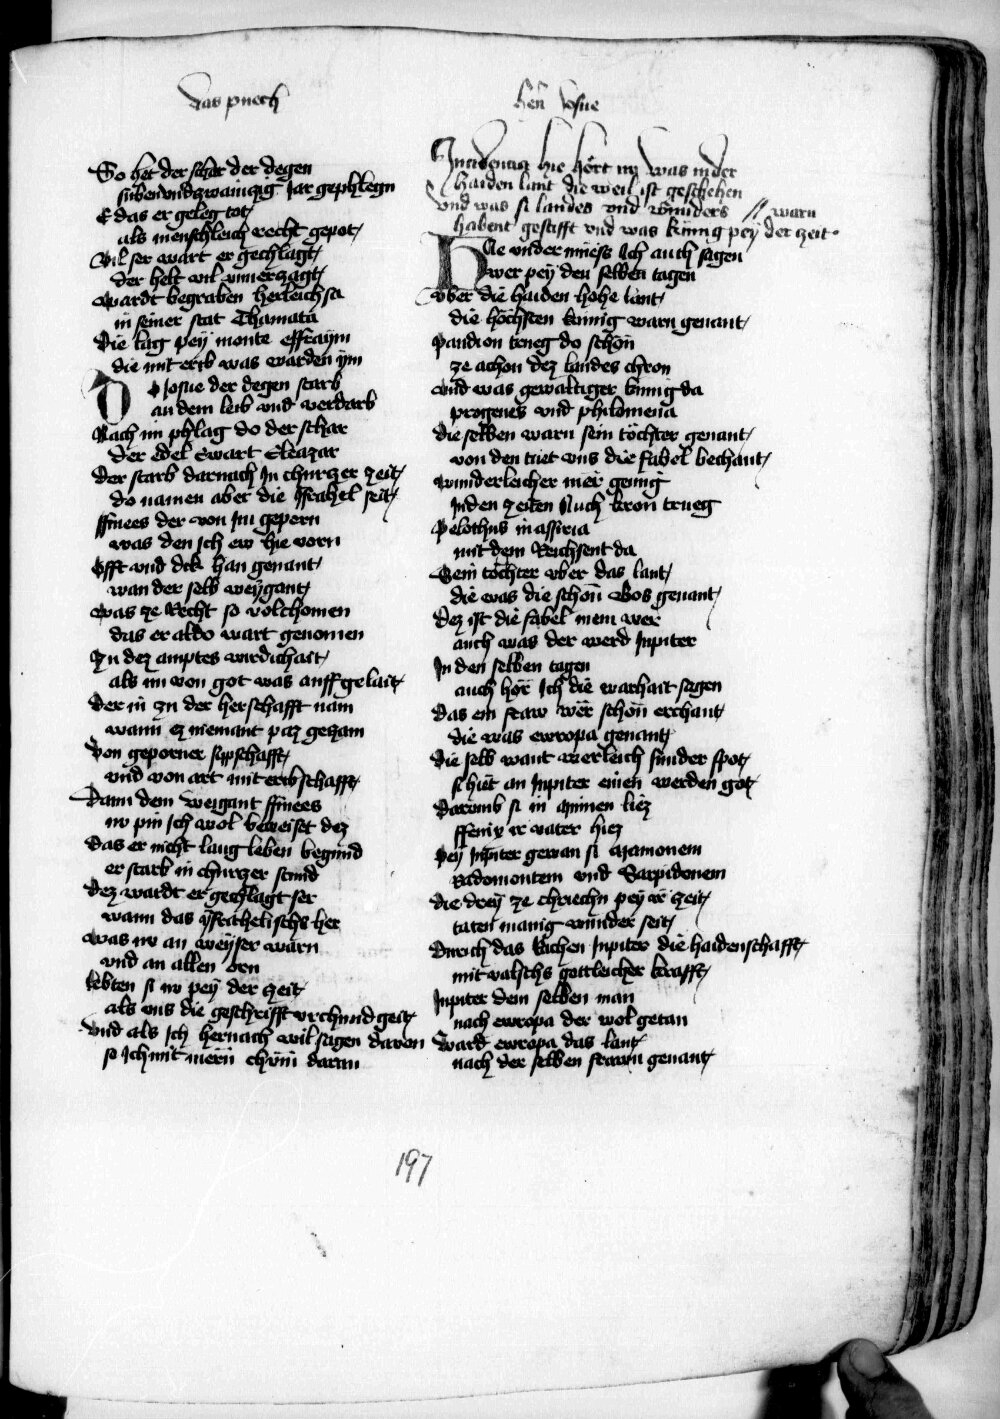 das puech
herñ Josue
So het der schar der degen
sibenvndzwainczig Jar gephlegñ
E das er geleg tot
als menschleich recht gepot
Vil ser wart er gechlagt
der helt vil vnuerzagt
wardt begraben herleich sa
in seiner stat Thamata
die lag pey monte effraÿm
die mit erib was warden ÿm
Do Josue der degen starb
an dem leib vnd verdarb
Nach im phlag do der schar
der edel Ewart Eleazar
der starb darnach In churczer zeit
do namen aber die Israhel seit
ffinees der von Im geporn
was den ich ew hie vorn
Offt vnd dik han genant
wan der selb weygant
was ze Recht so volchomen
das er aldo wart genomen
Zu dez amptes wirdichait
als im von got was auffgelait
der in zu der herschafft nam
wann ez niemant paz gezam
Von geporner sypschafft
vnd von art mit eribschafft
Dann dem weigant ffinees
nv pin ich wol beweiset dez
das er nicht lang leben begund
er starb in churczer stund
dez wardt er gechlagt ser
wann das ysrahelischs her
was nv an weyser warn
vnd an allen orn
lebten si nv pey der zeit
als vns die geschrifft vrchund geit
vnd als ich hernach wil sagen davon
so ich mit mern chüm daran
Incidencia hie hört ir was in der
haiden lant die weil ist geschehen
vnd was si landes vnd wunders // warn
habent gestifft vnd was künig peÿ der zeit
Hie vnder müess ich auch sagen
wer peÿ den selben tagen
vber die haiden hohe lant
die höchsten künig warn genant
Pandion trueg do schon
ze achon dez landes chron
vnd was gewaltiger künig da
progenes vnd philomena
die selben warn sein töchter genant
von den tuet vns die fabel bechant
wunderleicher mer genug
In den zeiten Auch kron trueg
Pelothus in assiria
mit dem Reichsent da
Sein tochter vber das lant
die was die schon Bos genant
dez ist die fabel mein wer
auch was der werd Jupiter
In den selben tagen
auch hör ich die warhait sagen
das ein fraw wer schon erchant
die was ewropa genant
die selb want werleich sunder spot
si hiet an Jupiter einen werden got
darumb si in minnen liez
ffenix ir vater hiez
Pey Jupiter gewan si Mamonem
Radomontem vnd Sarpidonem
die dreÿ ze chriechn peÿ ir zeit
taten manig wunder seit
Durich das kichen Jupiter die haidenschafft
mit valschs gottleicher krafft
Jupiter dem selben man
nach ewropa der wol getan
ward ewropa das lant
nach der selben frawñ genant
197